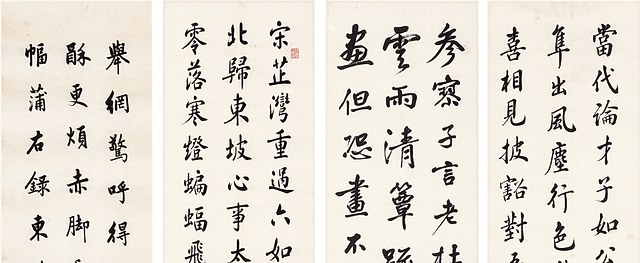 當代論才子如公
隼出風塵行色
喜相見披豁對
參寥子言老杜
雲雨清簟疏
畫但恐畫不
宋芷灣重過六如
北歸東坡心事太
零落寒燈蝙蝠飛
舉網驚呼得
酥更煩赤脚
幅蒲右錄東